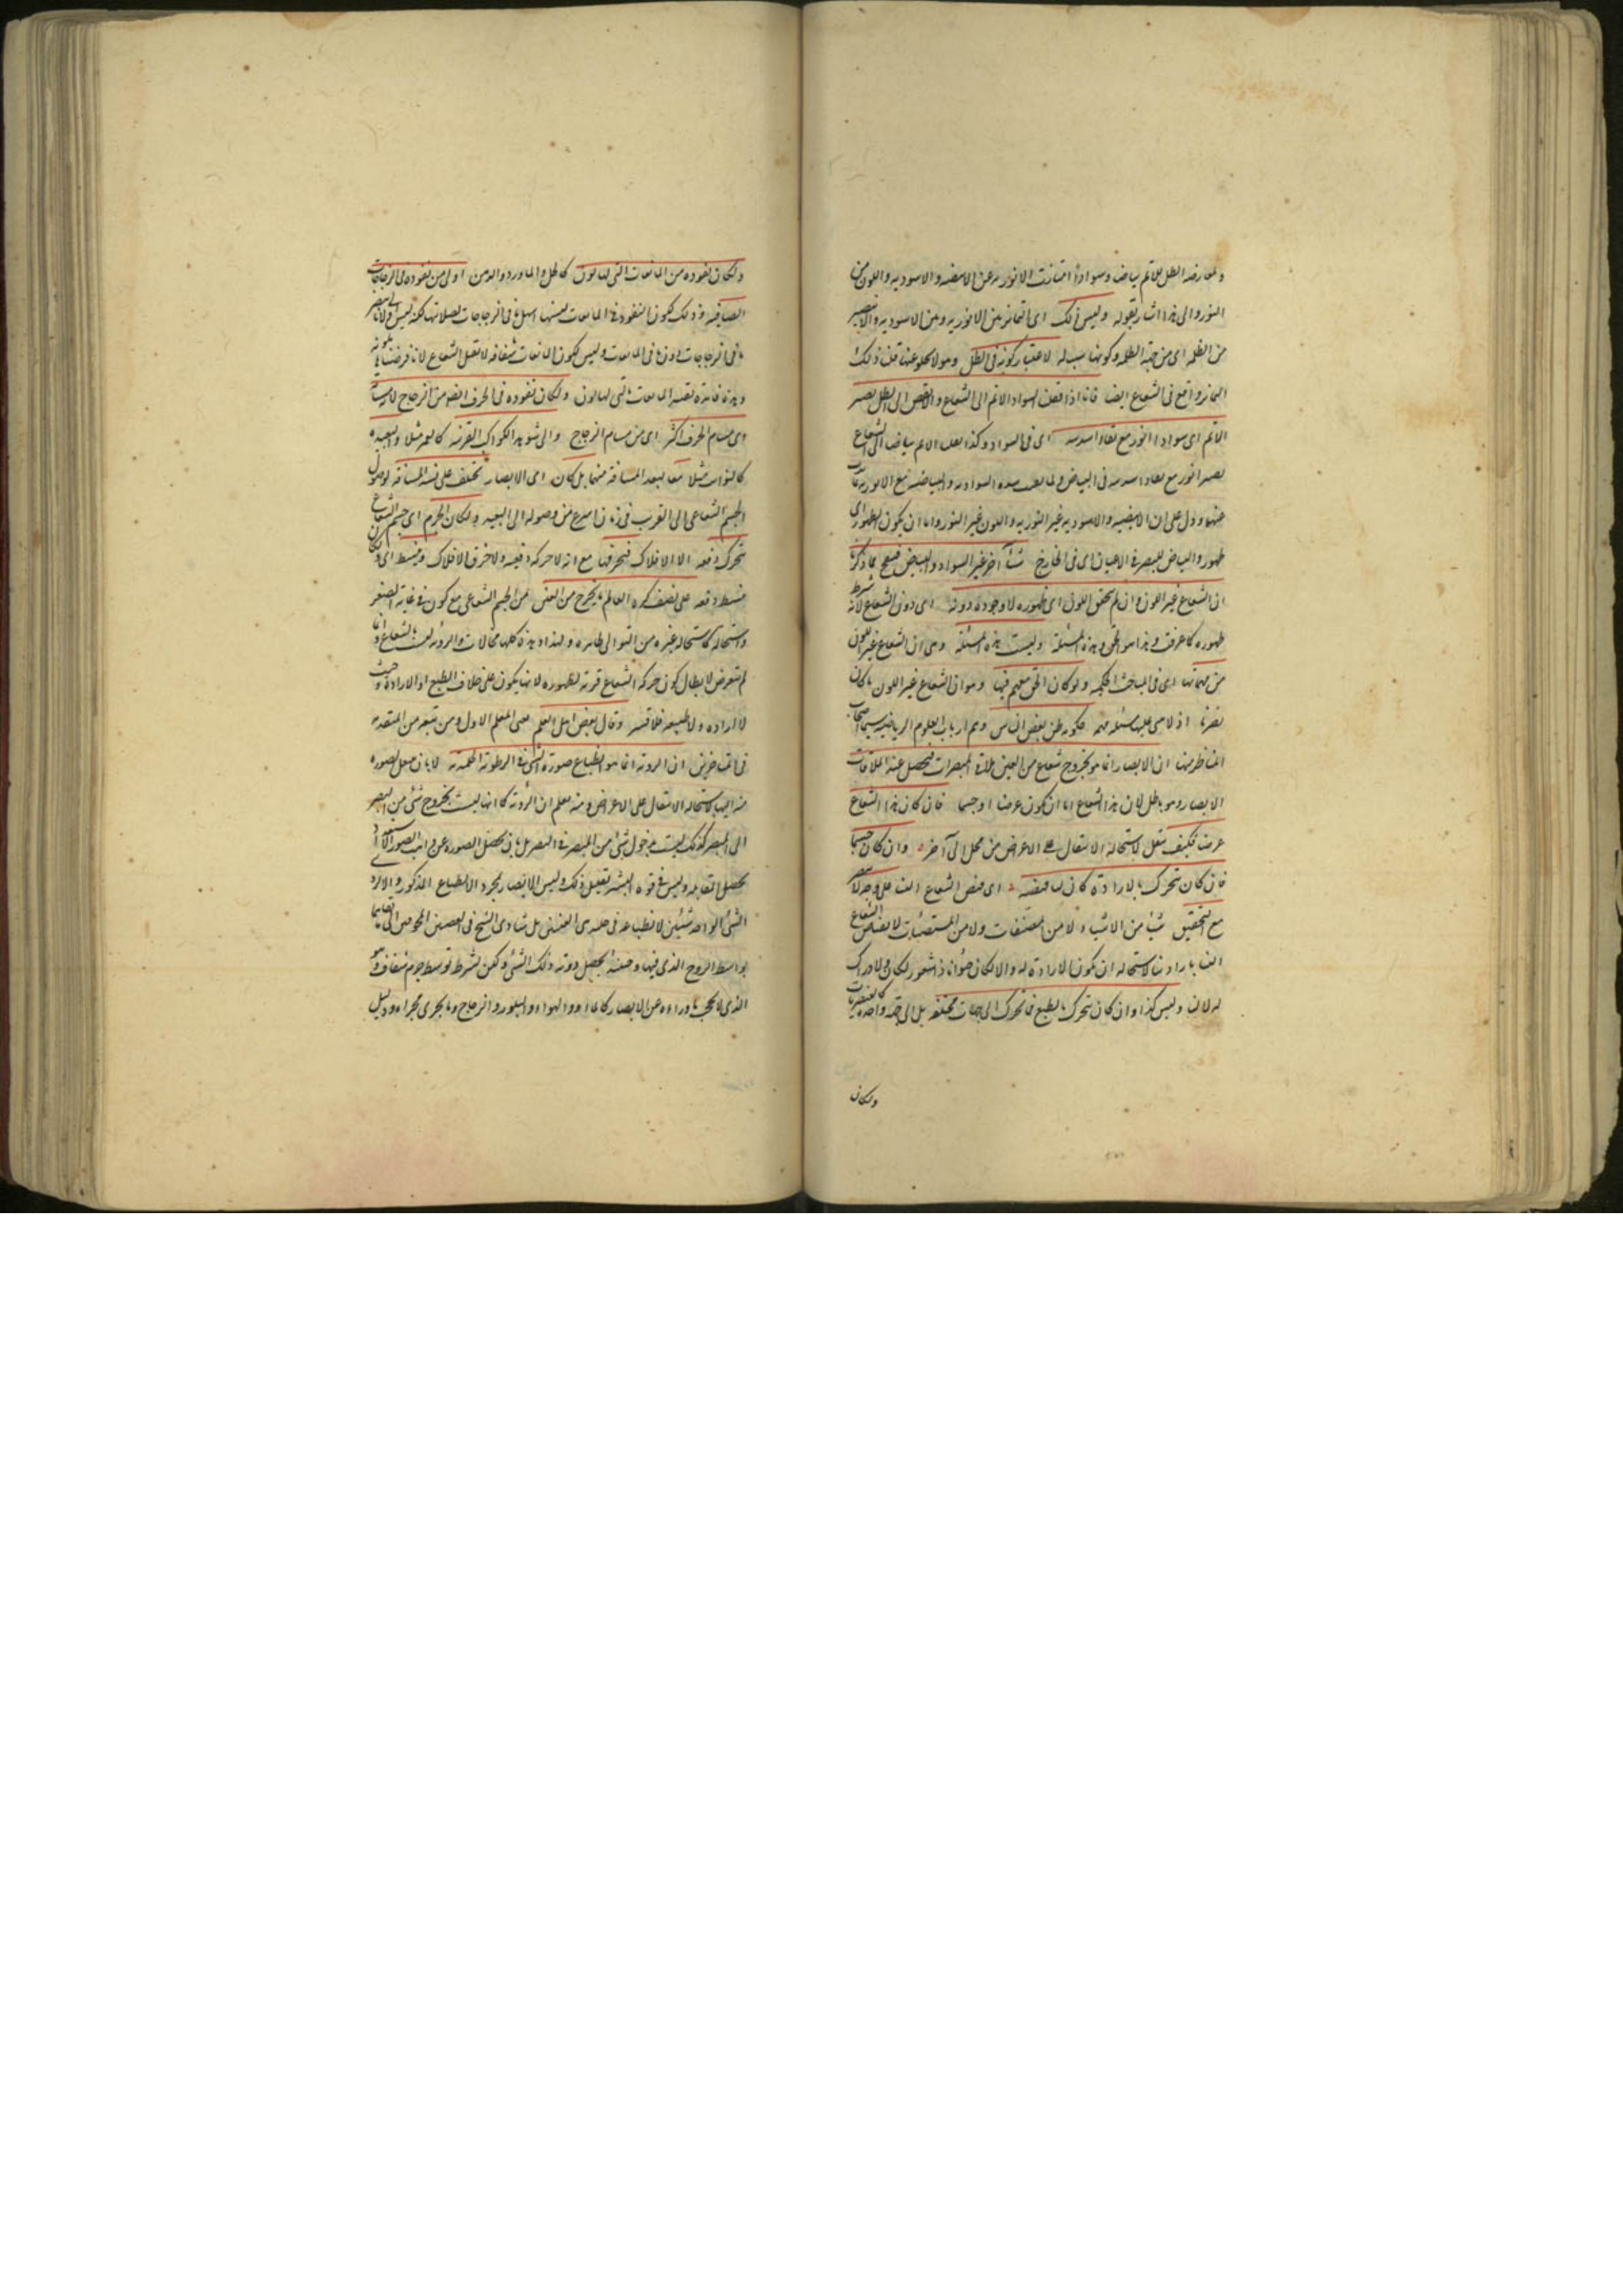 ولمعارضه الظل للاتم بياضا وسوادا امتازت الانورية عن الابيضيه والاسوديه واللون من
النور والى هذا اشار بقوله وليس ذلك اى التمايز بين الانوريه وبين الاسوديه والابيضيه
من الظلمه اى من جهة الظلمه وكونها سببا له لاعتبار كونه فى الظل وهو لا يخلو عنها قلت ذلك
التمايز واقع فى الشعاع ايضا فانا اذا قصدنا السواد الاتم الى الشعاع والانقص الى الظل يصير
الاتم اى سوادا انور مع بقاء اشديته اى فى السواد وكذا بعد الاتم بياضا الى الشعاع
يصير انور مع بقاء اشديته فى البياض
عنها ودل على ان الابيضيه والاسوديه غير النوريه واللون غير النور واما ان يكون الظهور اى
ظهور والبياض للبصر فى الاعيان اى فى الخارج شيئا آخر غير السواد والبياض فصح بما ذكرنا
ان الشعاع غير اللون وان لم يتحقق اللون اى ظهوره لا وجوده دونه اى دون الشعاع لانه شرط
ظهوره كما عرفت وهذا هو الحق وهذه المسئلة وليست هذه المسئلة وهى ان الشعاع غير اللون
من مهماتنا اى فى المباحث الحكميه ولو كان الحق معهم فيها وهو ان الشعاع غير اللون ما كان
يضرنا اذ لا يبتنى عليها مسئله مهمه حكومه ظن بعض الناس وهم ارباب العلوم الرياضيه سيما اصحاب
المناظر منها ان الابصار انما هو بخروج شعاع من العين يلاقى المبصرات فيحصل عند الملاقات
الابصار وهو باطل لان هذا الشعاع اما ان يكون عرضا او جسما فان كان هذا الشعاع
عرضا فكيف ينتقل لاستحاله الانتقال على الاعراض من محل الى آخر وان كان جسما
فان كان يتحرك بالارادة كان لنا قبضه اى قبض الشعاع الينا على وجه لا يبصر
مع التحديق شيئا من الاشياء ولا من المضيئات ولا من المستضيئات لانقباض الشعاع
الينا بارادتنا لاستحاله ان يكون الارادة له والا لكان حيوانا ذا شعور لكان الادراك
له لا لنا وليس كذا وان كان يتحرك بالطبع فما تحرك الى جهات مختلفه بل الى جهة واحده كالعنصريات
ولكان
ولكان نفوده من المايعات التى لها لون كالخل والماورد والدهن اولى من نفوده فى الزجاجات
الصافيه وذلك لكون النفوذ فى المايعات للينها اسهل منها فى الزجاجات لصلابتها لكنه ليس
ما فى الزجاجات دون ما فى المايعات وليس لكون المايعات شفافه لا تقبل الشعاع لانا فرضناها ملونه
وهذه فايدة تقييد المايعات بالتى لها لون ولكان نفوده فى الخزف ايضا من الزجاج لان مسامه
اى مسام الخزف اكثر اى من مسام الزجاج والى شوهد الكواكب القريبه كالقمر مثلا والبعيده
كالثوابت مثلا معا لبعد المسافة منها بل كان اى الابصار تختلف على نسبه المسافة لوصول
الجسم الشعاعى الى القريب فى زمان اسرع من وصوله الى البعيد ولكان الجرم اى جسم الشعاع
يتحرك دفعه الى الافلاك فيخرقها مع انه لا حركه دفعيه ولا خرق الافلاك وينبسط اى ولكان
ينبسط دفعه على نصف كره العالم ما يخرج من العين من الجسم الشعاعى مع كونه فى غاية الصغر
واستحاله كاستحاله غيره من التوالى ظاهره ولهذا وهذه كلها محالات والرؤيه ليست بالشعاع وانما
لم يتعرض لابطال كون حركه الشعاع قسريه لظهوره لانها يكون على خلاف الطبع او الارادة وحيث
لا اراده ولا طبيعه فلا قسر وقال بعض اهل العلم يعنى المعلم الاول ومن تبعه من المتقدمين
فى المتاخرين ان الرويه انما هو انطباع صورة الشئ فى الرطوبة الجليديه لا بان ينتقل الصوره
منه اليها لاستحاله الانتقال على الاعراض ومنه يعلم ان الرؤيه كما انها ليست بخروج شئ من البصر
الى المبصر كذلك ليست بدخول شئ من المبصر فى البصر بل بان تحصل الصوره عن واهب الصور
يحصل المقابله وليس فى قوه البشر تعليل ذلك وليس الابصار بمجرد الانطباع المذكور والا لرؤى
الشئ الواحد شيئين لانطباعه فى جليدى العينين بل بتادى الشبح فى العصبتين المجوفتين الى تقابلهما
بواسطه الروح الذى فيها وحينئذ يحصل رويه ذلك الشئ ولكن بشرط توسط جرم شفاف وهو
الذى لا يحجب ما وراءه عن الابصار كالماء والهواء والبلور والزجاج وما يجرى مجراه ودليل